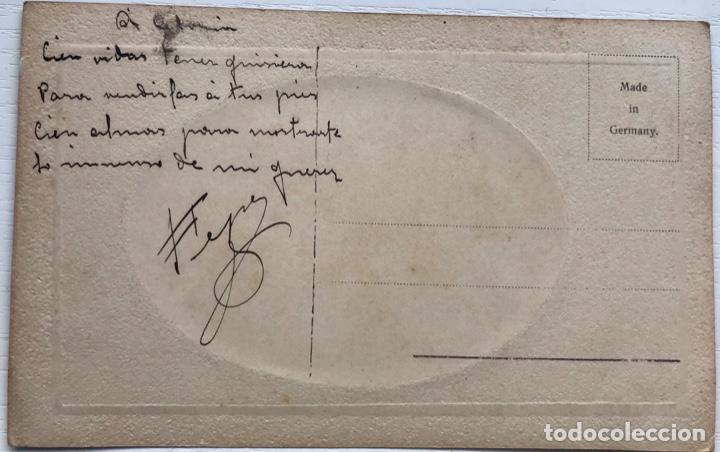 Á
Cien vidas tener quisiera
Para rendirlas á tus pies
Cien almas para mostrarte
lo inmenso de mi querer
Made
in
Germany.
todocoleccion